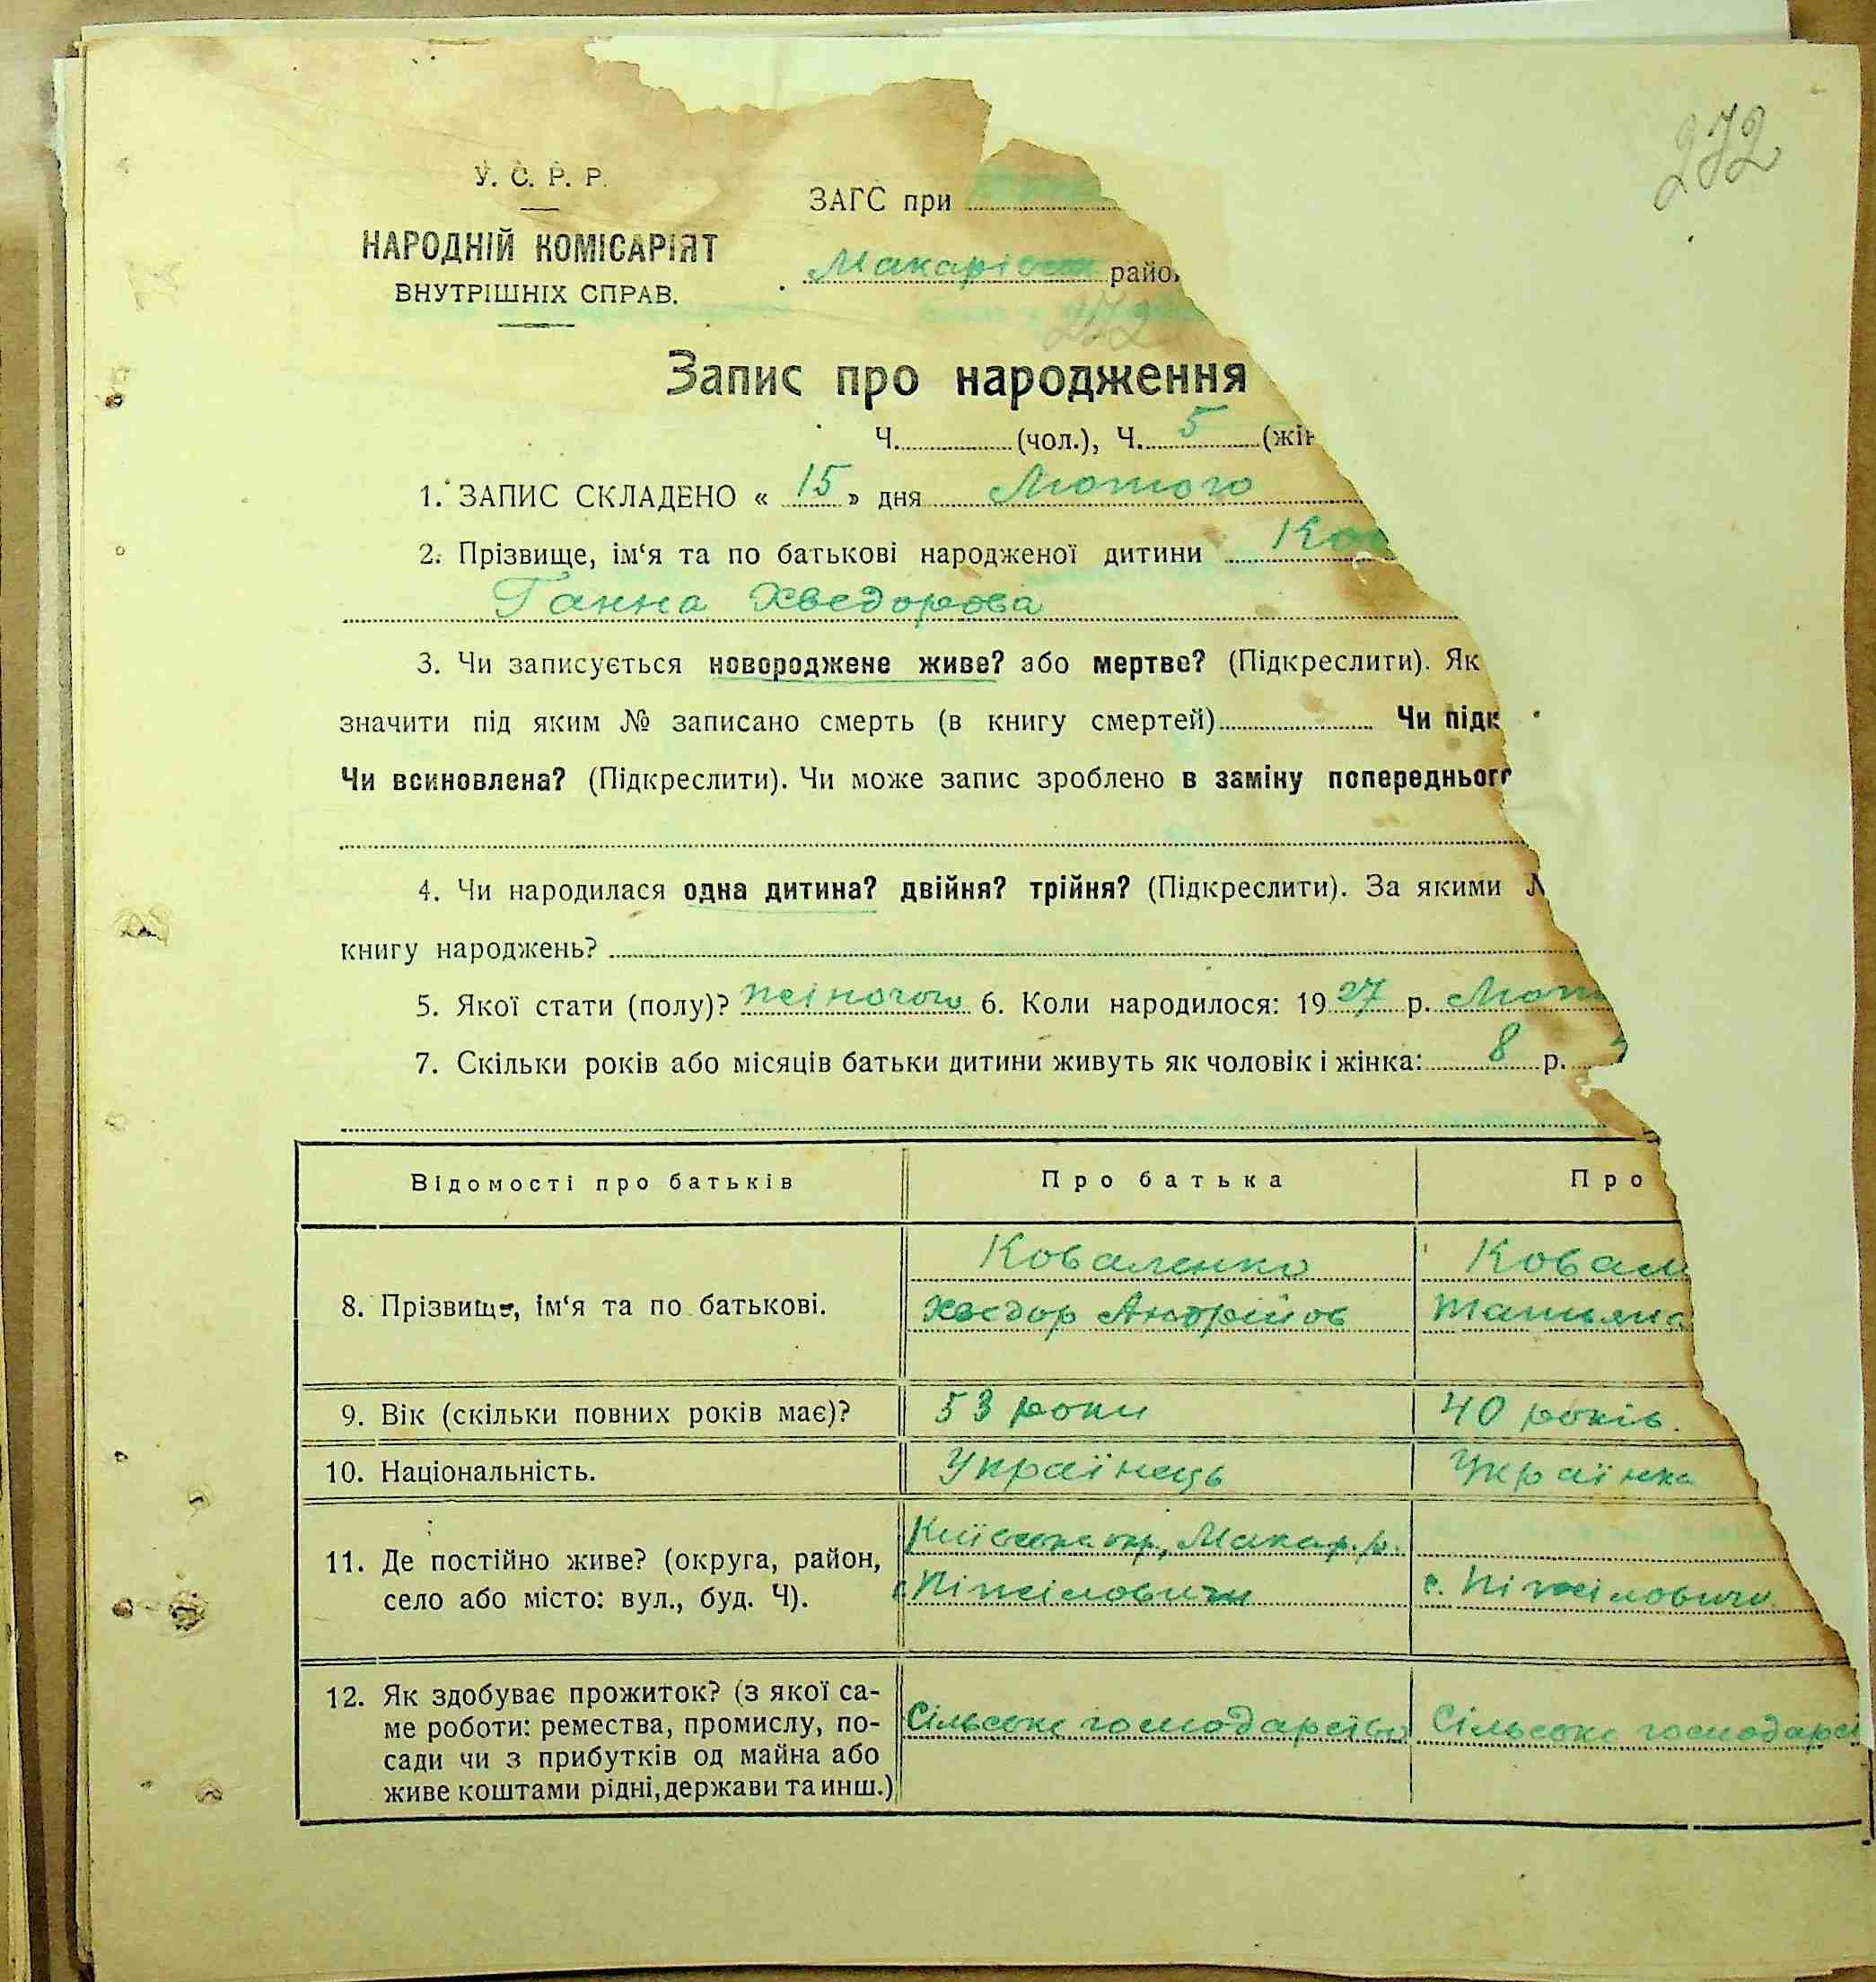 272
У. С. Р. Р.
ЗАГС при
НАРОДНІЙ КОМІСАРІЯТ
Макарівськ райо
ВНУТРІШНІХ СПРАВ.
272
Запис про народження
Ч. (чол.), Ч. 5 (жін
1. ЗАПИС СКЛАДЕНО « 15 » дня Лютого
2. Прізвище, ім‘я та по батькові народженої дитини Ков
Ганна Хведорова
3. Чи записується новороджене живе? або мертве? (Підкреслити). Як
значити під яким № записано смерть (в книгу смертей) Чи підк
Чи всиновлена? (Підкреслити). Чи може запис зроблено в заміну попереднього
4. Чи народилася одна дитина? двійня? трійня? (Підкреслити). За якими №
книгу народжень?
5. Якої стати (полу)? жіночого 6. Коли народилося: 1927 р. Лют
7. Скільки років або місяців батьки дитини живуть як чоловік і жінка: 8 р.
Відомості про батьків Про батька Про
8. Прізвище, ім‘я та по батькові. Коваленко Ковал
Хведор Андрійов Татьяна
9. Вік (скільки повних років має)? 53 роки 40 років.
10. Національність. Українець Українка
11. Де постійно живе? (округа, район, село або місто: вул., буд. Ч). Київська окр., Макар. р.
с. Ніжіловичи с. Ніжіловичи
12. Як здобуває прожиток? (з якої са-
ме роботи: ремества, промислу, по- Сільське господарство Сільське господарс
сади чи з прибутків од майна або
живе коштами рідні, держави та инш.)